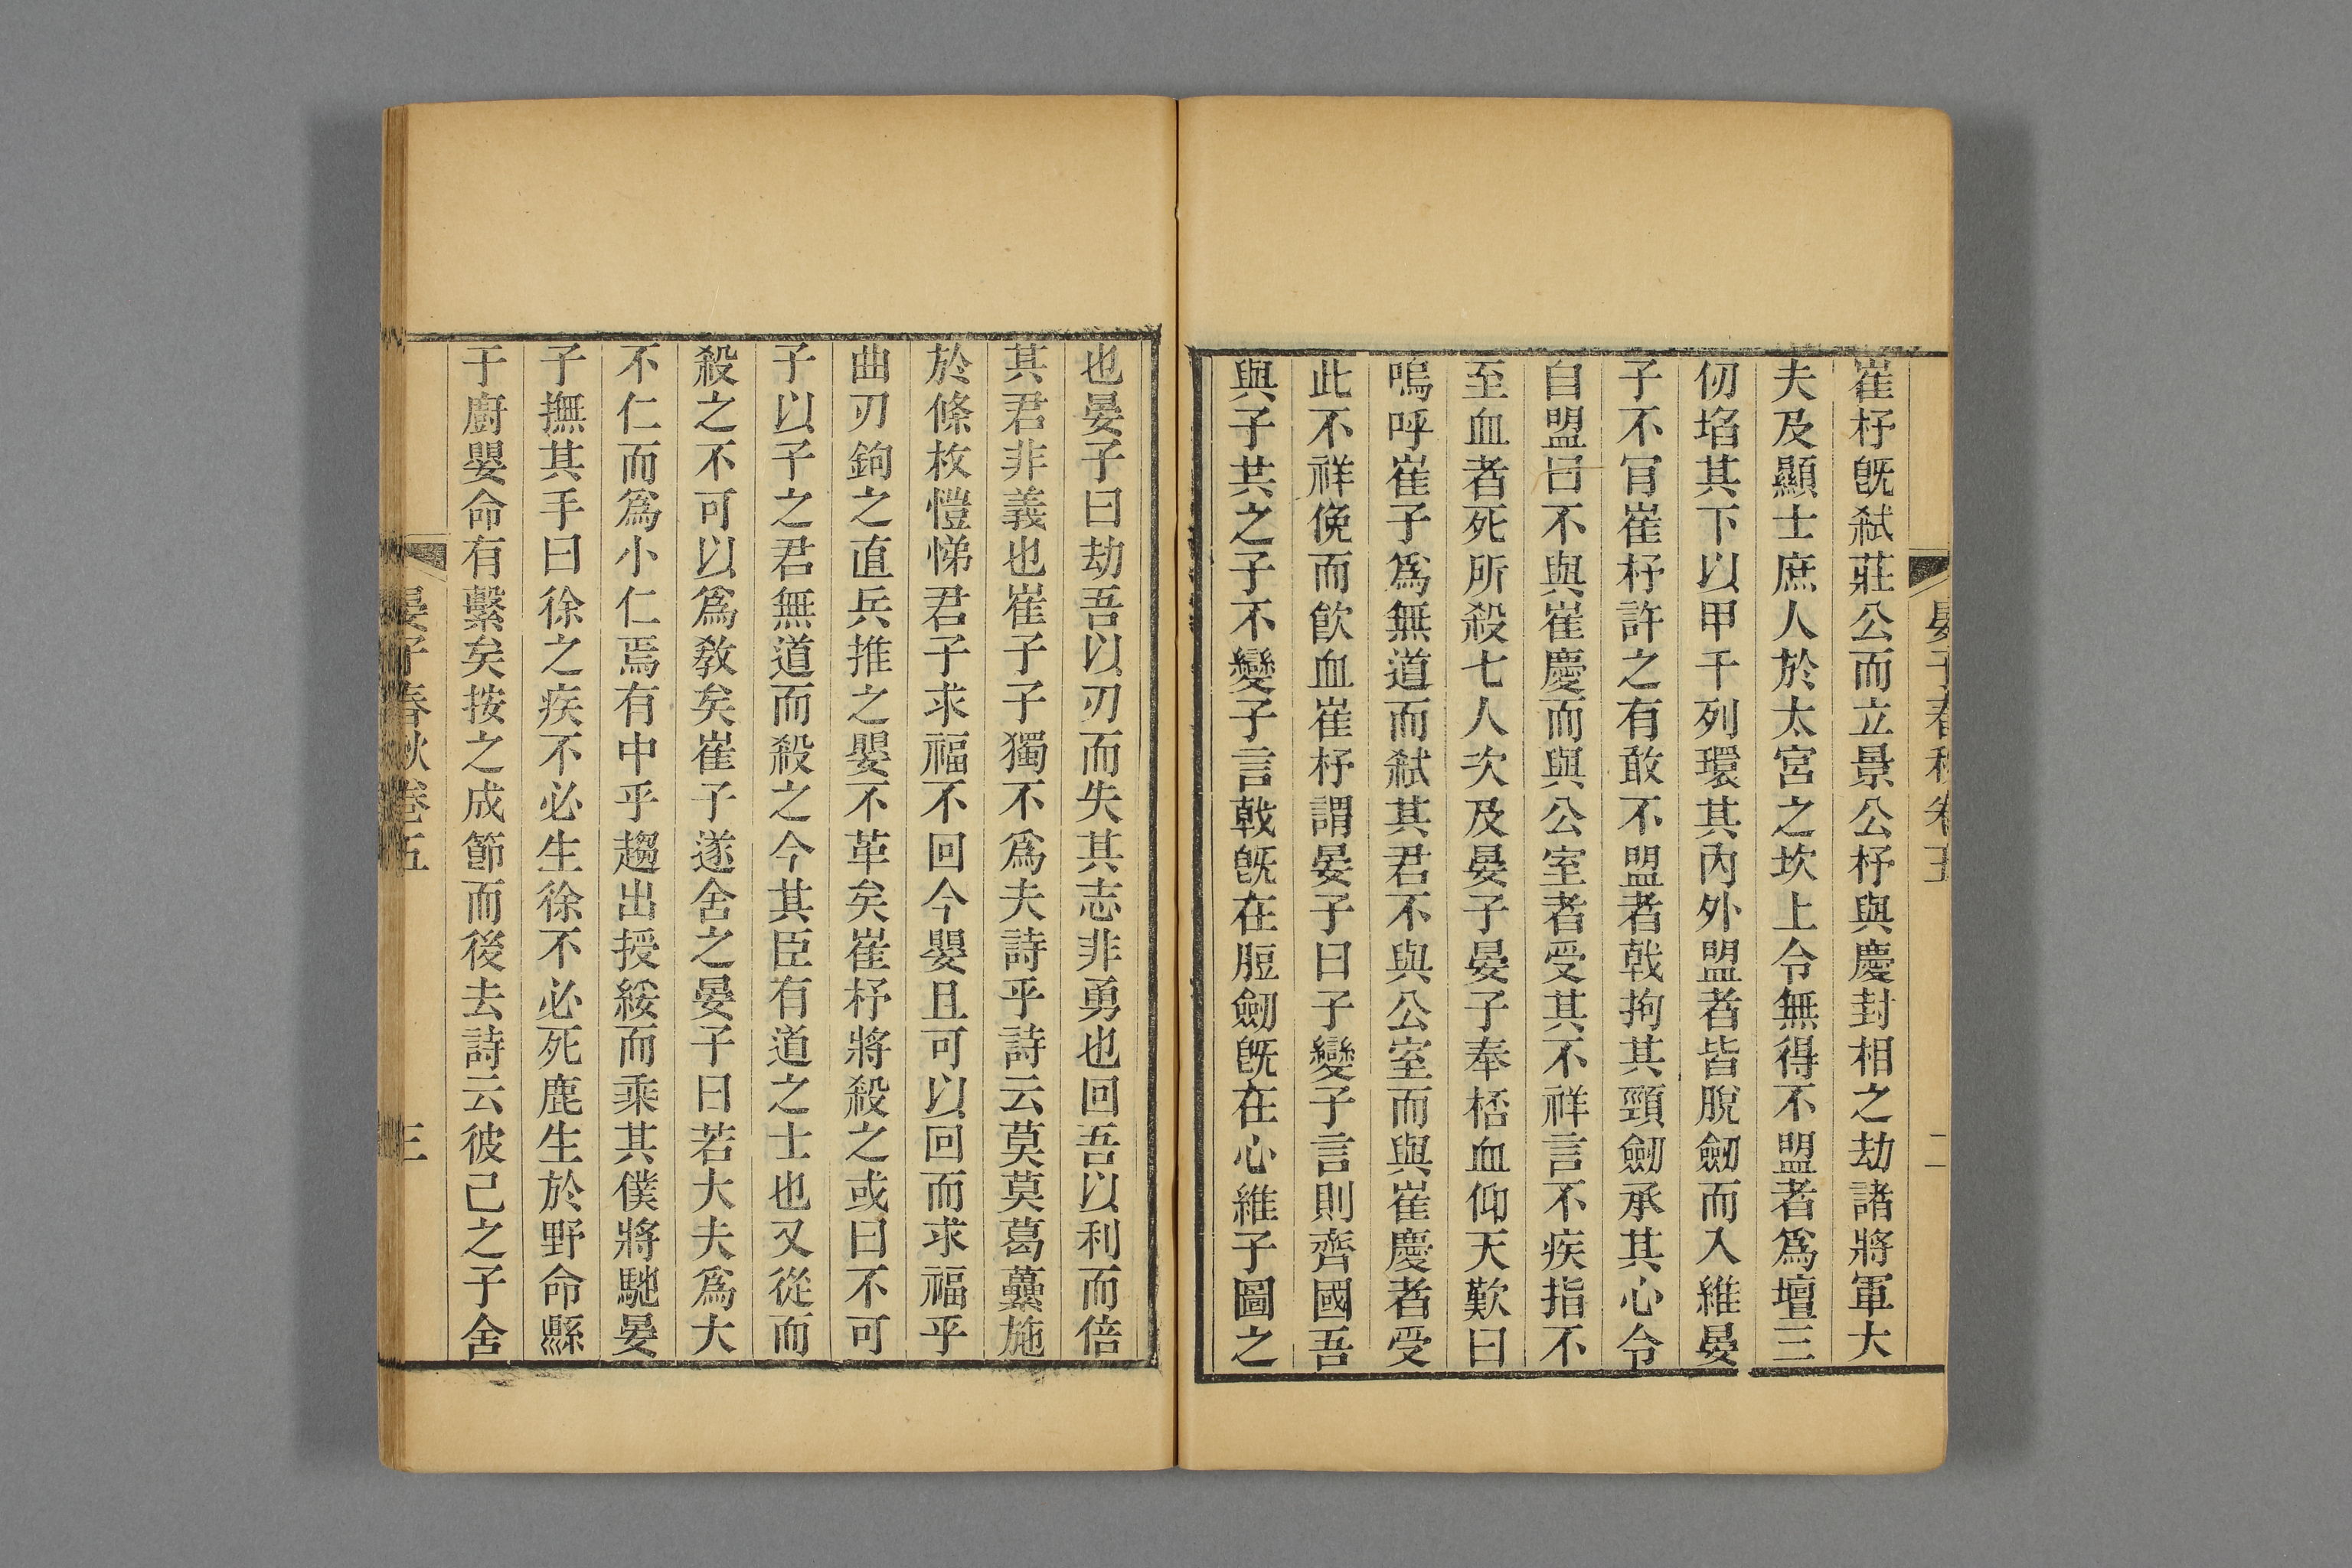 晏子春秋卷五
二
崔杼旣弑莊公而立景公杼與慶封相之劫諸將軍大
夫及顯士庶人於太宮之坎上令無得不盟者爲壇三
仞埳其下以甲千列環其內外盟者皆脫劒而入維晏
子不肎崔杼許之有敢不盟者戟拘其頸劒承其心令
自盟曰不與崔慶而與公室者受其不祥言不疾指不
至血者死所殺七人次及晏子晏子奉桮血仰天歎曰
嗚呼崔子爲無道而弑其君不與公室而與崔慶者受
此不祥俛而飮血崔杼謂晏子曰子變子言則齊國吾
與子共之子不變子言戟旣在脰劒旣在心維子圖之
也晏子曰劫吾以刃而失其志非勇也回吾以利而倍
其君非義也崔子子獨不爲夫詩乎詩云莫莫葛虆施
於條枚愷悌君子求福不回今嬰且可以回而求福乎
曲刃鉤之直兵推之嬰不革矣崔杼將殺之或曰不可
子以子之君無道而殺之今其臣有道之士也又從而
殺之不可以爲敎矣崔子遂舍之晏子曰若大夫爲大
不仁而爲小仁焉有中乎趨出授綏而乘其僕將馳晏
子撫其手曰徐之疾不必生徐不必死鹿生於野命縣
于廚嬰命有繫矣按之成節而後去詩云彼己之子舍
晏子春秋卷五
三